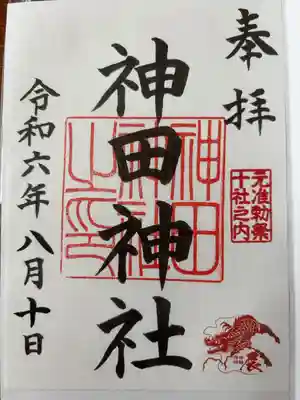 奉拝
神田神社
令和六年八月十日
神田神社之印
元准勅祭
十社之内
辰